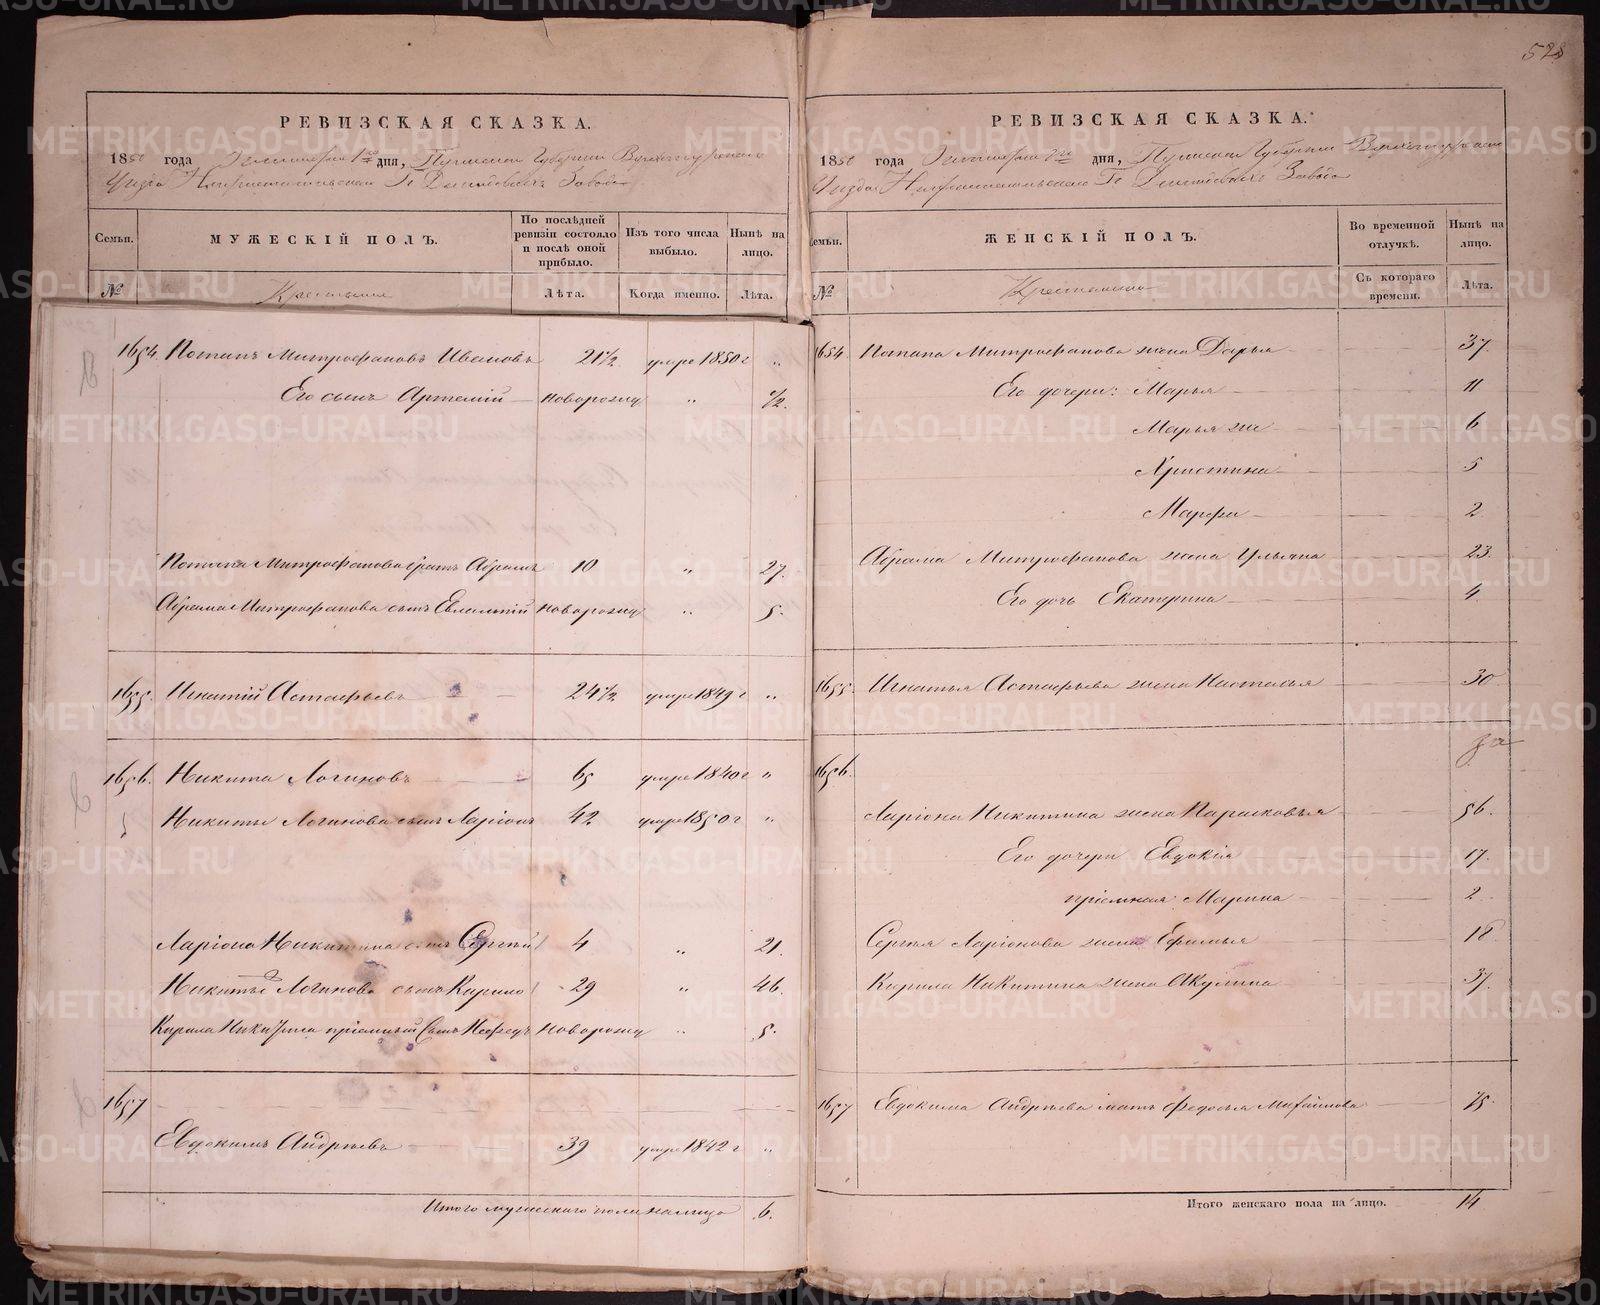 528
РЕВИЗСКАЯ СКАЗКА.
1850 года дня, Пермской Губерніи Верхотурскаго
Уѣзда Гг Демидовыхъ Завода
Семьи.
МУЖЕСКІЙ ПОЛЪ.
По послѣдней ревизіи состояло и послѣ оной прибыло.
Изъ того числа выбыло.
Нынѣ на лицо.
№
Крестьяне
Лѣта.
Когда именно.
Лѣта.
1654. Потапъ Митрофановъ Ивановъ 21½ умре 1850 г "
Его сынъ Артемій новорожд " ½.
Потапа Митрофанова братъ Абрамъ 10 " 27.
Абрама Митрофанова сынъ новорожд " 5.
1655. Игнатій Астафьевъ 24½ умре 1849 г "
1656. Никита Логиновъ 65 умре 1840 г "
Никиты Логинова сынъ Ларіонъ 42 умре 1850 г "
Ларіона Никитина сынъ Сергѣй 4 " 21.
Никиты Логинова сынъ Кирило 29 " 46.
Кирила Никитина пріемный сынъ Нефедъ новорожд " 5.
1657
Евдокимъ Андрѣевъ 39 умре 1842 г "
Итого мужескаго пола налицо 6.
РЕВИЗСКАЯ СКАЗКА.
1850 года дня, Пермской Губерніи Верхотурскаго
Уѣзда Гг Демидовыхъ Завода
Семьи.
ЖЕНСКІЙ ПОЛЪ.
Во временной отлучкѣ.
Нынѣ на лицо.
№
Крестьянки
Съ котораго времени.
Лѣта.
1654. Потапа Митрофанова жена Дарья 37.
Его дочери: Марья 11
Марья же 6
Христина 5
Марфа 2
Абрама Митрофанова жена Ульяна 23.
Его дочь Екатерина 4
1655. Игнатья Астафьева жена Настасья 30
1656.
Ларіона Никитина жена Парасковья 56.
Его дочери Евдокія 17.
пріемная Марина 2
Сергѣя Ларіонова жена Ефимья 18
Кирила Никитина жена Акулина 37.
1657 Евдокима Андрѣева мать Федосья 75.
Итого женскаго пола на лицо. 14
METRIKI.GASO-URAL.RU